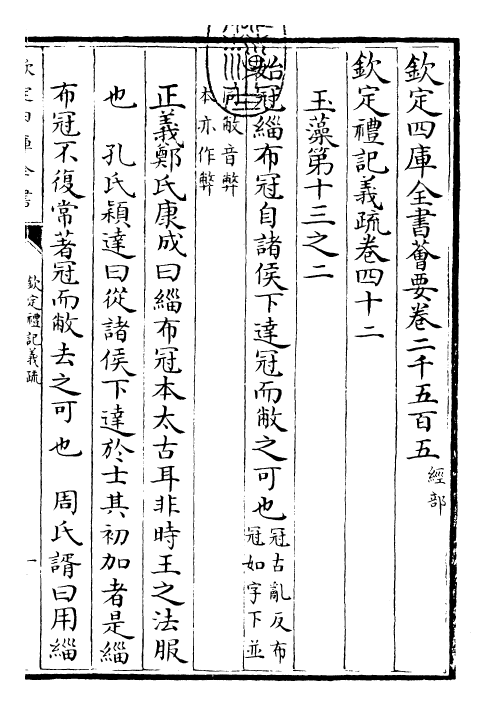 欽定四庫全書薈要卷二千五百五 經部
欽定禮記義疏卷四十二
玉藻第十三之二
始冠緇布冠自諸侯下達冠而敝之可也 冠古亂反布
冠如字下並
同敝音弊
本亦作弊
正義鄭氏康成曰緇布冠本太古耳非時王之法服
也 孔氏穎達曰從諸侯下達於士其初加者是緇
布冠不復常著冠而敝去之可也 周氏諝曰用緇
欽定四庫全書
欽定禮記義疏
一